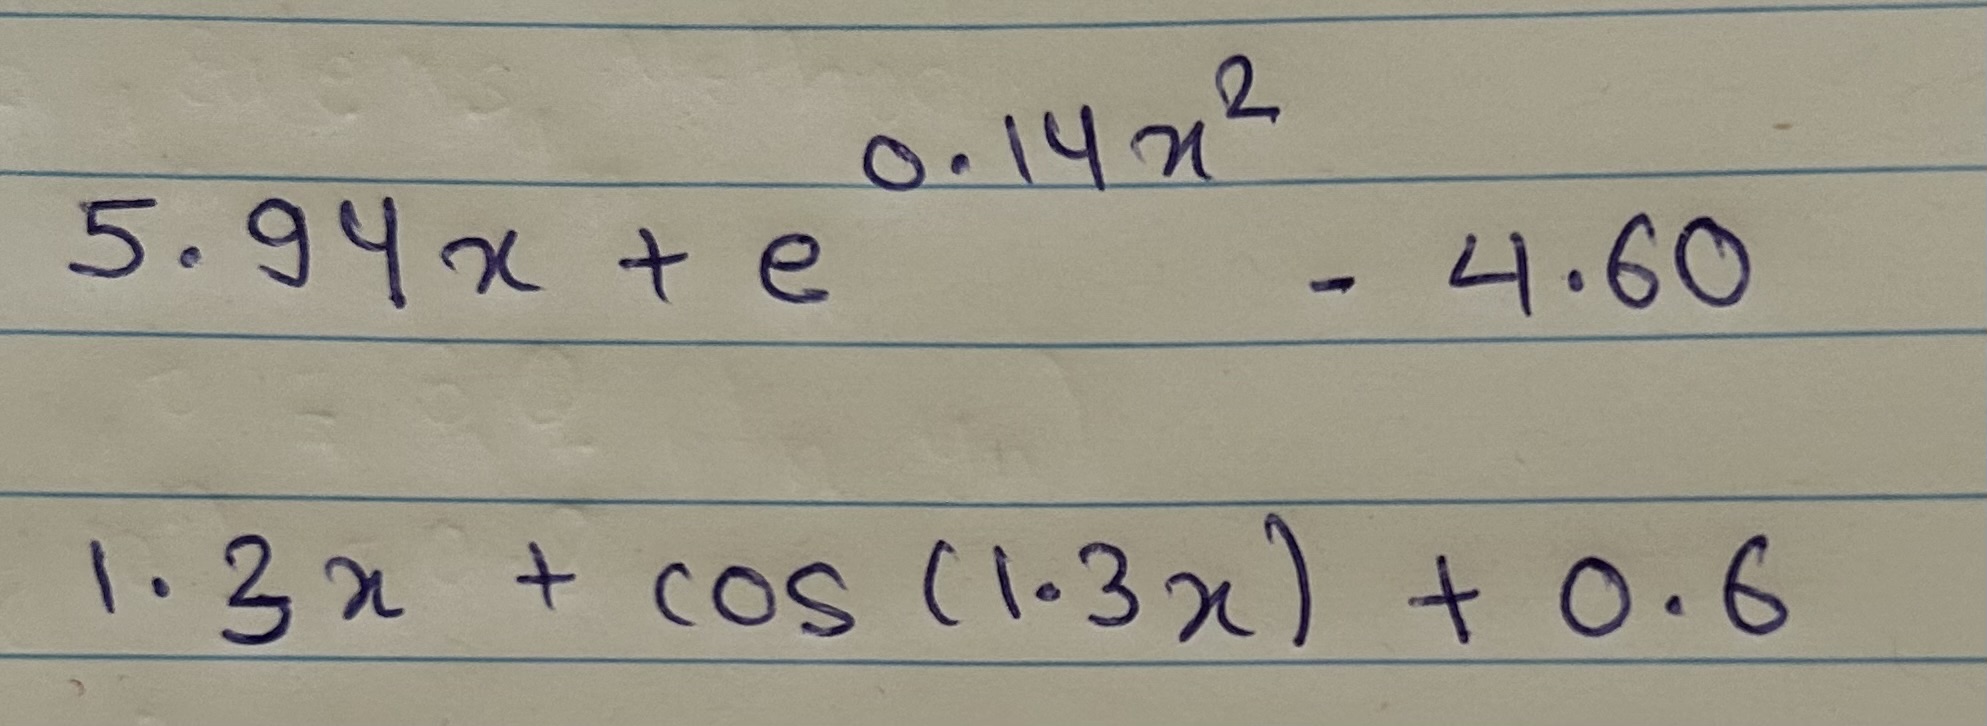 5.94x + e^{0.14x^2} - 4.60
1.3x + cos (1.3x) + 0.6